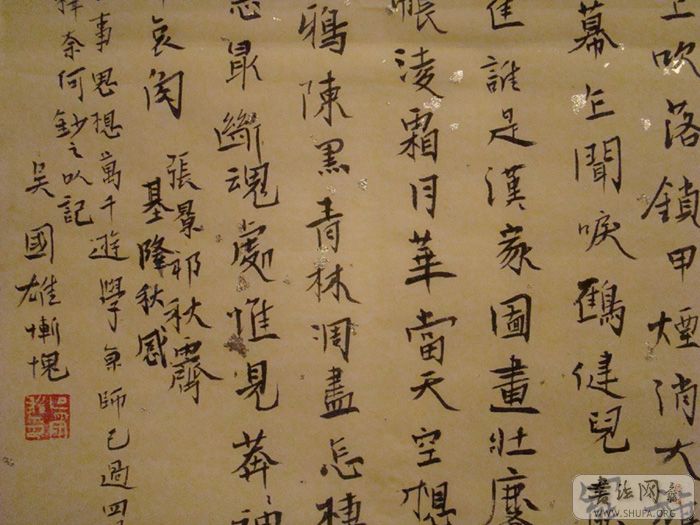 上吹落鎖甲煙消大
幕上聞唳鶴健兒
誰是漢家圖畫壯麾
帳淩霜月華當天空想
鴉陳黑青林凋盡怎棲
忍最斷魂處惟見莽神
哀角
張景祁秋霽
基隆秋感
事思想萬千遊學魚師已過四
奈何鈔之以記
吳國雄慚愧
書法网
WWW.SHUFA.ORG